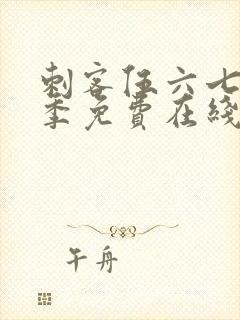 刺客伍六七
季免費在綫
午舟